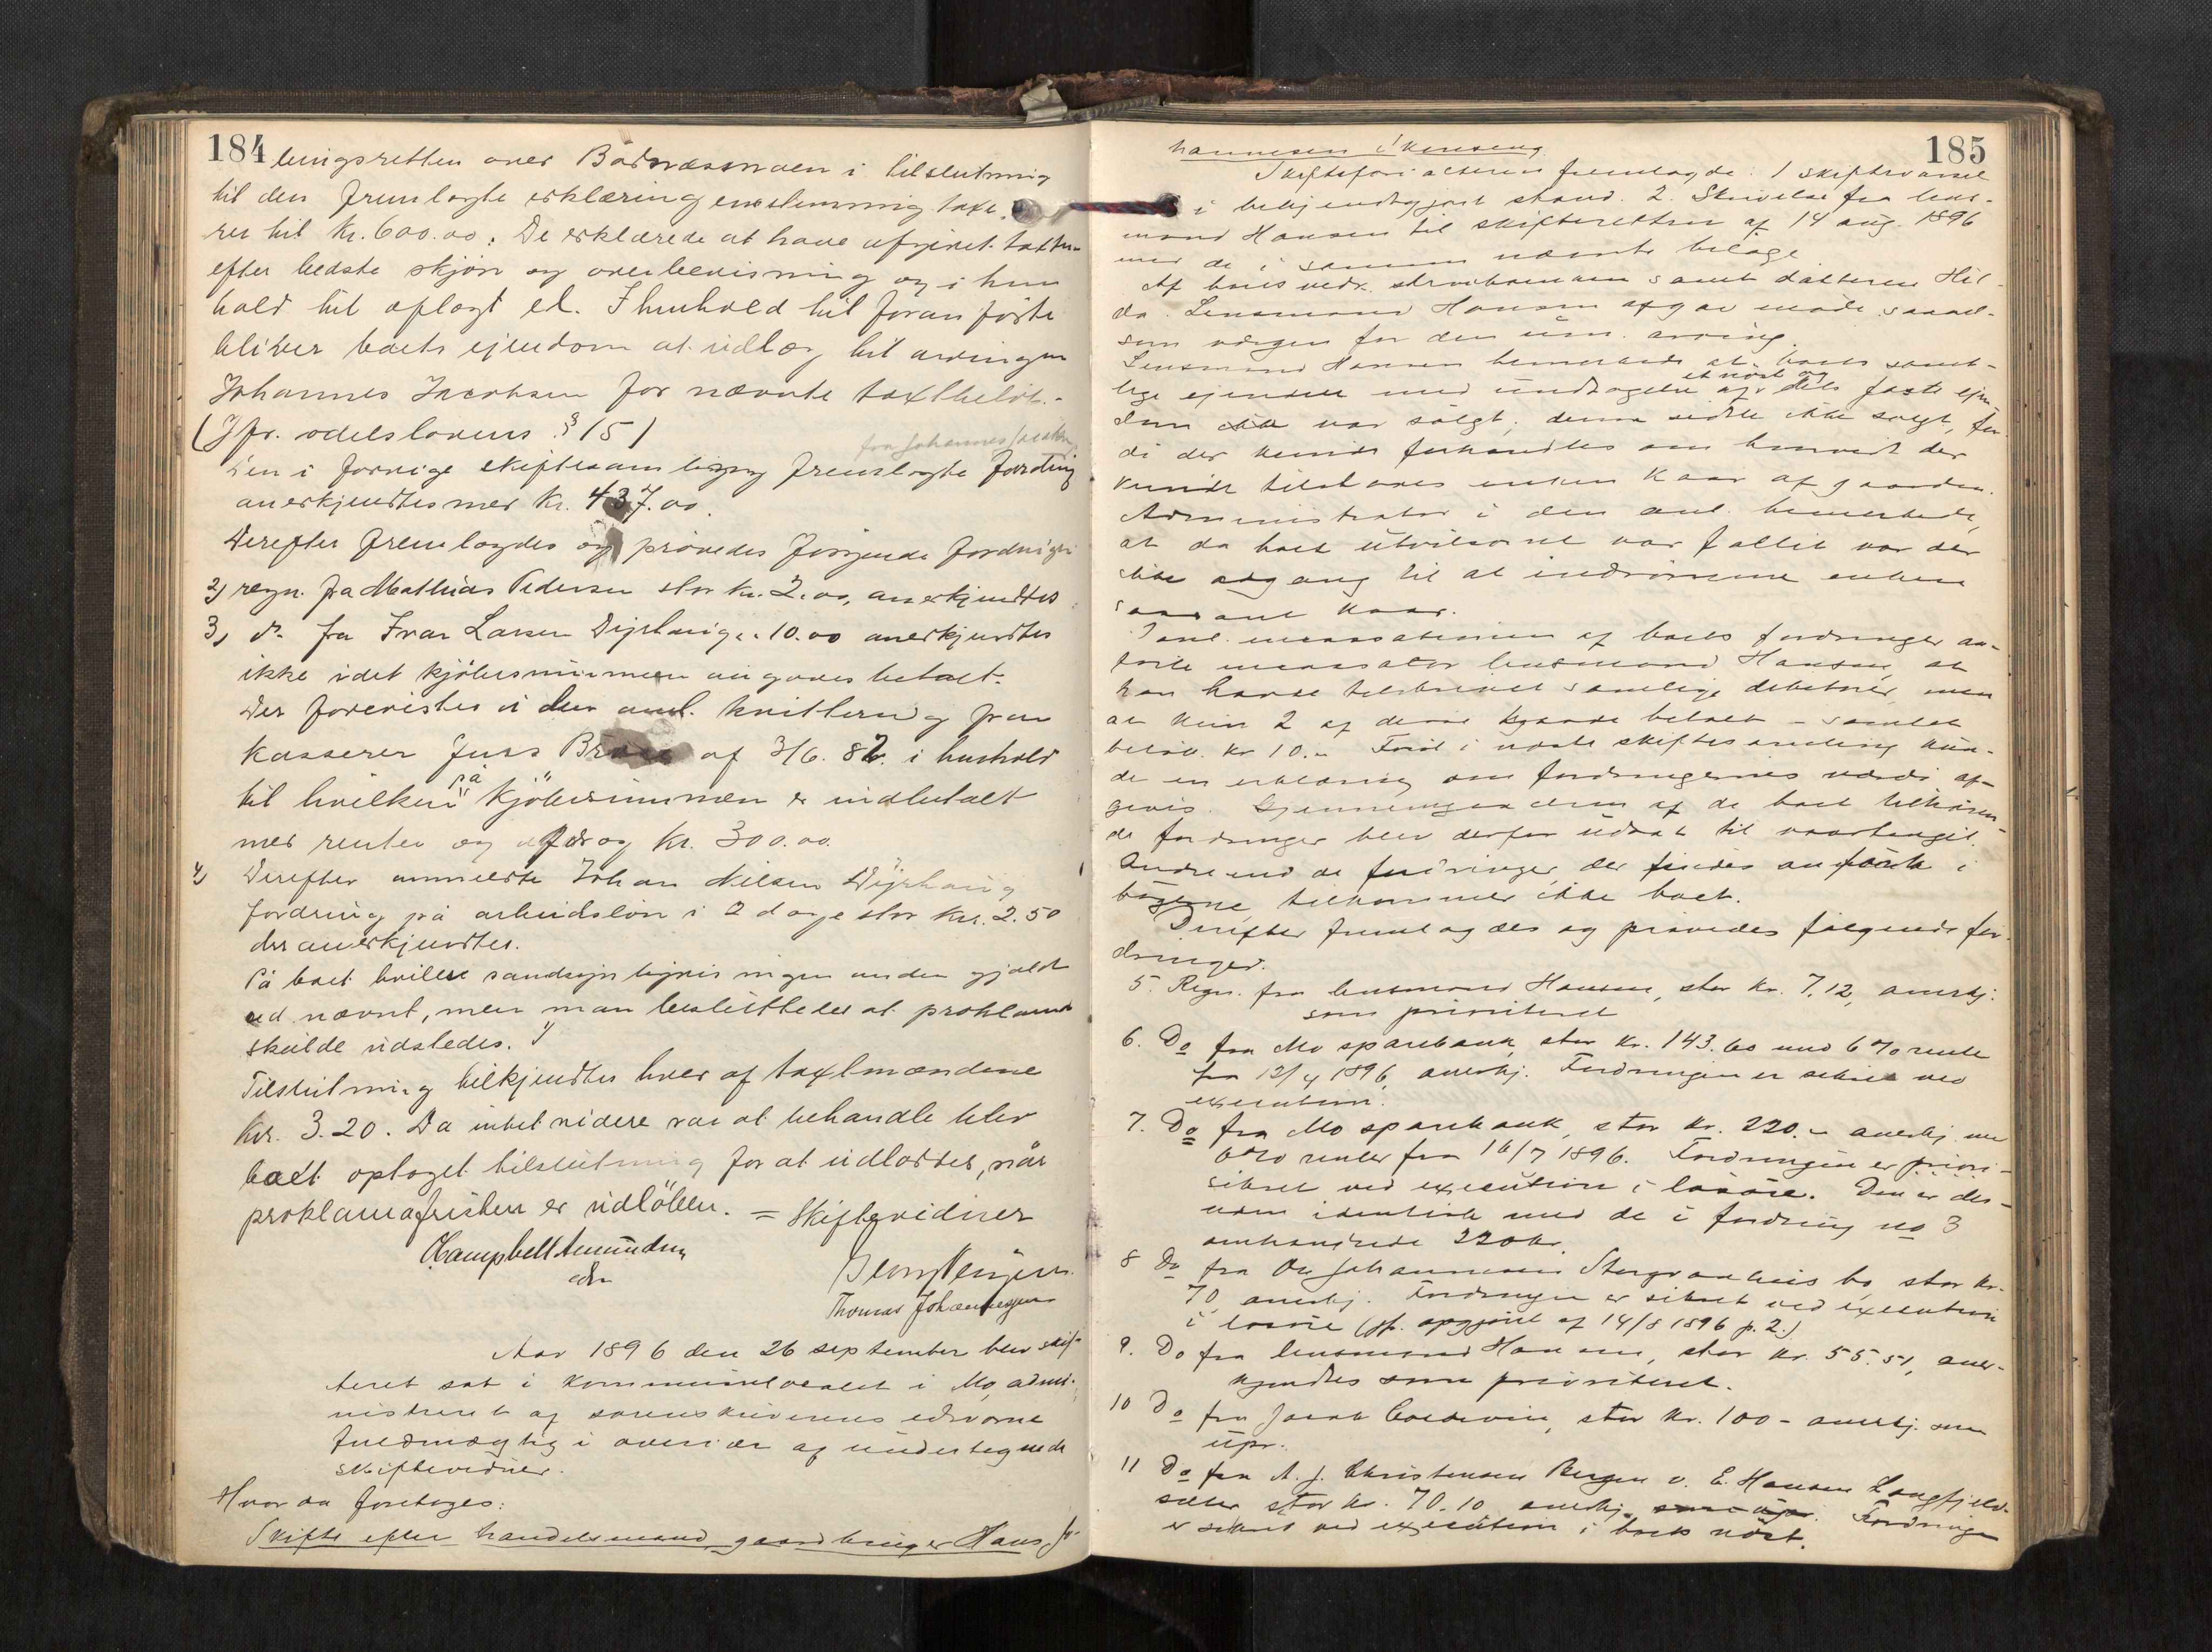 184
lingsretten over Baadnæsmoen i tilslutning
til den fremlagte erklæring enstemmig taxe-
res til Kr. 600.00. De erklærede at have afgivet taxten
efter bedste skjøn og overbevisning og i hen
hold til aflagt ed. I henhold til foranførte
bliver boets ejendom at udlæg til arvingen
Johannes Jacobsen for nævnte taxtbeløb.-
(Jfr. odelslovens § 15)
fra Johannes Jacobs
Den i forrige skiftesamling fremlagte fordring
anerkjendtes med Kr. 437.00.
Derefter fremlagdes og prøvedes følgende fordringer
2) regn. fra Mathias Pedersen stor Kr. 2.00, anerkjendtes
3) do. fra Ivar Larsen Dyrhaug " 10.00 anerkjendtes
ikke idet kjøbesummen angaves betalt.
Der forevistes i den anl. kvittering fra
Kasserer Jens af 3/6. 82. i henhold
på
til hvilken kjøbesummen er indbetalt
med renter og afdrag Kr. 300.00.
4) Derefter anmeldte Johan Nilsen Dyrhaug
fordring på arbeidsløn i 2 dage stor Kr. 2.50
der anerkjendtes.
På boet hviler sandsynligvis ingen anden gjæld
end nævnt, men man besluttede at proklama
skulde udstedes.
Tilslutning tilkjendtes hver af taxtmændene
Kr. 3.20. Da intet videre var at behandle blev
boet optaget til slutning for at udloddes, når
proklamafristen er udløben. = Skiftevidner
CCampbell Amundsen
edsv
Thomas Johannesen
Aar 1896 den 26 september blev skif-
teret sat i kommunelocalet i Mo, admi-
nistreret af sorenskriverens edsvorne
fuldmægtig i overvær af undertegnede
skiftevidner.
Hvor da foretoges:
Skifte efter handelsmand, gaardbruger Hans Jo-
185
hannesen
Skifteforvalteren fremlagde: 1 skiftevarsel
i bekjendtgjort stand. 2. Skrivelse fra lens-
mand Hansen til skifteretten af 14 aug. 1896
med de i samme nævnte bilage.
Af boets vedk. enken samt datteren Hil-
da. Lensmand Hansen afgav møde saavel-
som værgen for den um. arving.
Lensmand Hansen bemærkede at boets samt-
et nøst og
lige ejendele med undtagelse af dets faste ejen-
dom var solgt; denne sidste ikke solgt, for
di der kunde forhandles om hvorvidt der
kunde tilstaaes enken kaar af gaarden.
Administrator i den anl. bemærkede,
at da boet utvilsomt var fallit var der
ikke adgang til at indrømme enken
saadant kaar.
I anl. incassationen af boets fordringer an-
førte incassator lensmand Hansen, at
han havde tilskrevet samtlige debitorer, men
at kun 2 af disse havde betalt - samlet
beløb kr 10.- Først i næste skiftesamling kun-
de en erklæring om fordringernes værdi af-
gives. Gjennemgaaelsen af de boet tilhøren-
de fordringer blev derfor udsat til
Andre end de fordringer, der findes anførte i
bøgerne, tilkommer ikke boet.
Derefter fremlagdes og prøvedes følgende for-
dringer.
5. Regn. fra lensmand Hansen, stor kr. 7,12, anerkj.
som prioriteret
6. Do fra Mo sparebank, stor kr. 143.60 med 6% rente
fra 12/4 1896, anerkj. Fordringen er sikret ved
execution.
7. Do fra Mo sparebank, stor kr. 220.- anerkj. med
6% renter fra 16/7 1896. Fordringen er
sikret ved execution i løsøre. Den er des-
uden identisk med de i fordring no 3
omhandlede 220 kr.
8 Do fra Ole Johannesen bo, stor kr.
70, anerkj. Fordringen er sikret ved execution
i løsøre (jfr. opgjøret af 14/8 1896 p. 2.)
9. Do fra lensmand Hansen, stor kr. 55.51, aner-
kjendtes som prioriteret.
10 Do fra Jacob, stor kr. 100 - anerkj. som
upr.
11 Do fra A. J. Christensen Bergen v. E. Hansen Langfjeld-
stor kr. 70.10 anerkj. som upr. Fordringen
er sikret ved execution i boets nøst.